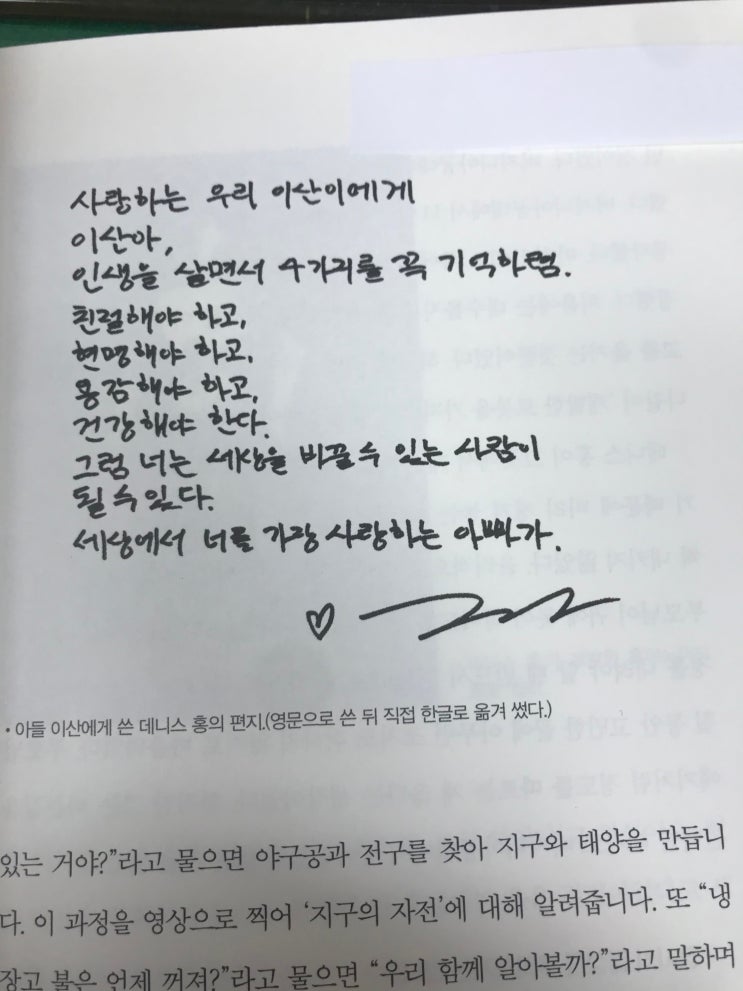 사랑하는 우리 이산이에게
이산아,
인생을 살면서 4가지를 꼭 기억하렴.
친절해야 하고,
현명해야 하고,
용감해야 하고,
건강해야 한다.
그럼 너는 세상을 바꿀 수 있는 사람이
될 수 있다.
세상에서 너를 가장 사랑하는 아빠가.
• 아들 이산에게 쓴 데니스 홍의 편지.(영문으로 쓴 뒤 직접 한글로 옮겨 썼다.)
있는 거야?”라고 물으면 야구공과 전구를 찾아 지구와 태양을 만듭니
다. 이 과정을 영상으로 찍어 ‘지구의 자전’에 대해 알려줍니다. 또 “냉
장고 불은 언제 꺼져?”라고 물으면 “우리 함께 알아볼까?”라고 말하며